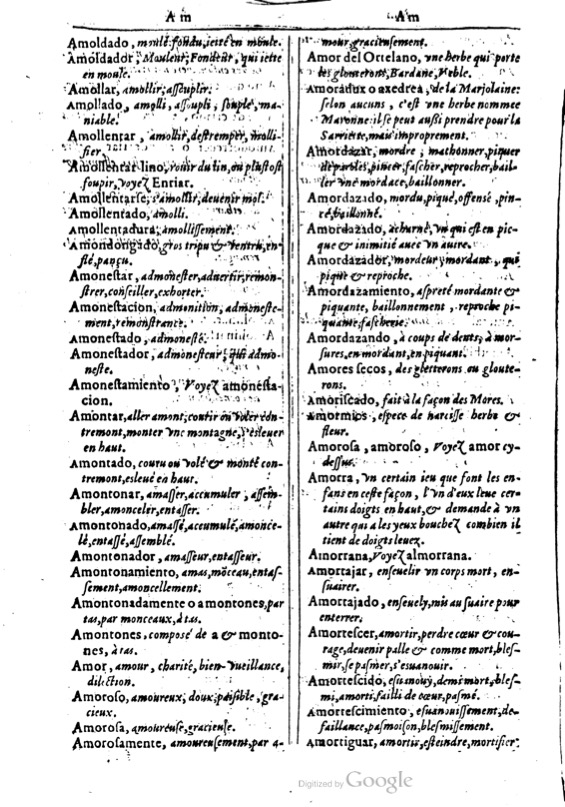 Am
Amoldado, moulé, fondu, ietté en moule.
Amoldador, Mouleur, Fondeur, qui iette
en moule.
Amollar, amollir, assouplir.
Amollado, amolli, assoupli, souple, ma-
niable.
Amollentar, amollir, destremper, molli-
fier.
Amollentar lino, rouir du lin, ou plustost
soupir, voyez Enriar.
Amollentarse, s'amollir, deuenir mol.
Amollentado, amolli.
Amollentadura, amollissement.
Amondongado, gros tripu & ventru, en-
flé, pançu.
Amonestar, admonester, aduertir, remon-
strer, conseiller, exhorter.
Amonestacion, admonition, admoneste-
ment, remonstrance.
Amonestado, admonesté.
Amonestador, admonesteur, qui admo-
neste.
Amonestamiento, Voyez amonesta-
cion.
Amontar, aller amont, courir ou voler con-
tremont, monter vne montagne, s'esleuer
en haut.
Amontado, couru ou volé & monté con-
tremont, esleué en haut.
Amontonar, amasser, accumuler, assem-
bler, amonceler, entasser.
Amontonado, amassé, accumulé, amonce-
lé, entassé, assemblé.
Amontonador, amasseur, entasseur.
Amontonamiento, amas, mõceau, entas-
sement, amoncellement.
Amontonadamente o a montones, par
tas, par monceaux, à tas.
Amontones, composé de a & monto-
nes, à tas.
Amor, amour, charité, bien-vueillance,
dilection.
Amoroso, amoureux, doux, paisible, gra-
cieux.
Amorosa, amoureuse, gracieuse.
Amorosamente, amoureusement, par a-
Am
mour, gracieusement.
Amor del Ortelano, vne herbe qui porte
des glouterons, Bardane, Hieble.
Amoradux o axedrea, de la Marjolaine:
selon aucuns, c'est vne herbe nommee
Maronne: il se peut aussi prendre pour la
Sarriette, mais improprement.
Amordazar, mordre, machonner, piquer
de paroles, pincer, fascher, reprocher, bail-
ler vne mordace, baillonner.
Amordazado, mordu, piqué, offensé, pin-
cé, baillonné.
Amordazado, acharné, vn qui est en pic-
que & inimitié auec vn autre.
Amordazador, mordeur, mordant, qui
pique & reproche.
Amordazamiento, aspreté mordante &
piquante, baillonnement, reproche pi-
quante, fascherie.
Amordazando, à coups de dents, à mor-
sures, en mordant, en piquant.
Amores secos, des gletterons ou gloute-
rons.
Amoriscado, fait à la façon des Mores.
Amormios, espece de narcisse herbe &
fleur.
Amorosa, amoroso, Voyez amor cy-
dessus.
Amorra, vn certain ieu que font les en-
fans en ceste façon, l'vn d'eux leue cer-
tains doigts en haut, & demande à vn
autre qui a les yeux bouchez combien il
tient de doigts leuez.
Amorrana, Voyez almorrana.
Amortajar, enseuelir vn corps mort, en-
suairer.
Amortajado, enseuely, mis au suaire pour
enterrer.
Amortescer, amortir, perdre cœur & cou-
rage, deuenir palle & comme mort, bles-
mir, se pasmer, s'esuanouir.
Amortescido, esuanouy, demi mort, bles-
mi, amorti, failli de cœur, pasmé.
Amortescimiento, esuanouissement, de-
faillance, pasmoison, blesmissement.
Amortiguar, amortir, esteindre, mortifier.
Digitized by Google